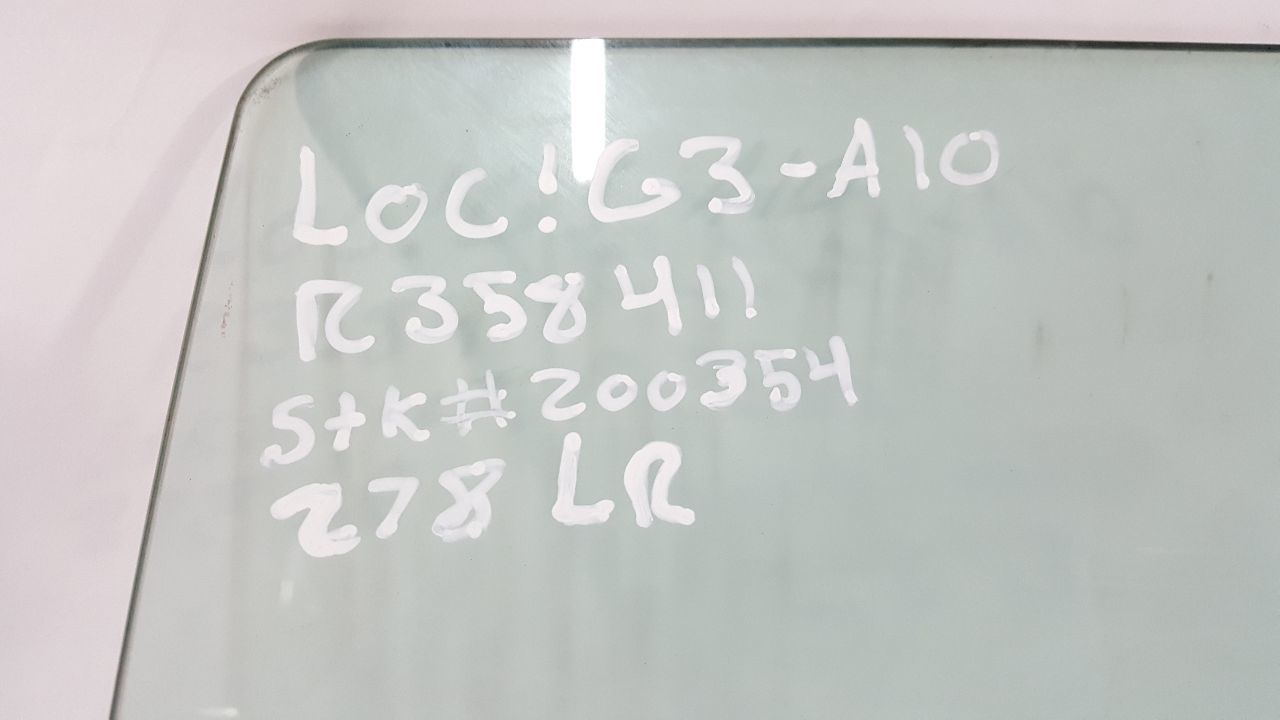 LOC: G3-A10
R358411
StK# 200354
278 LR